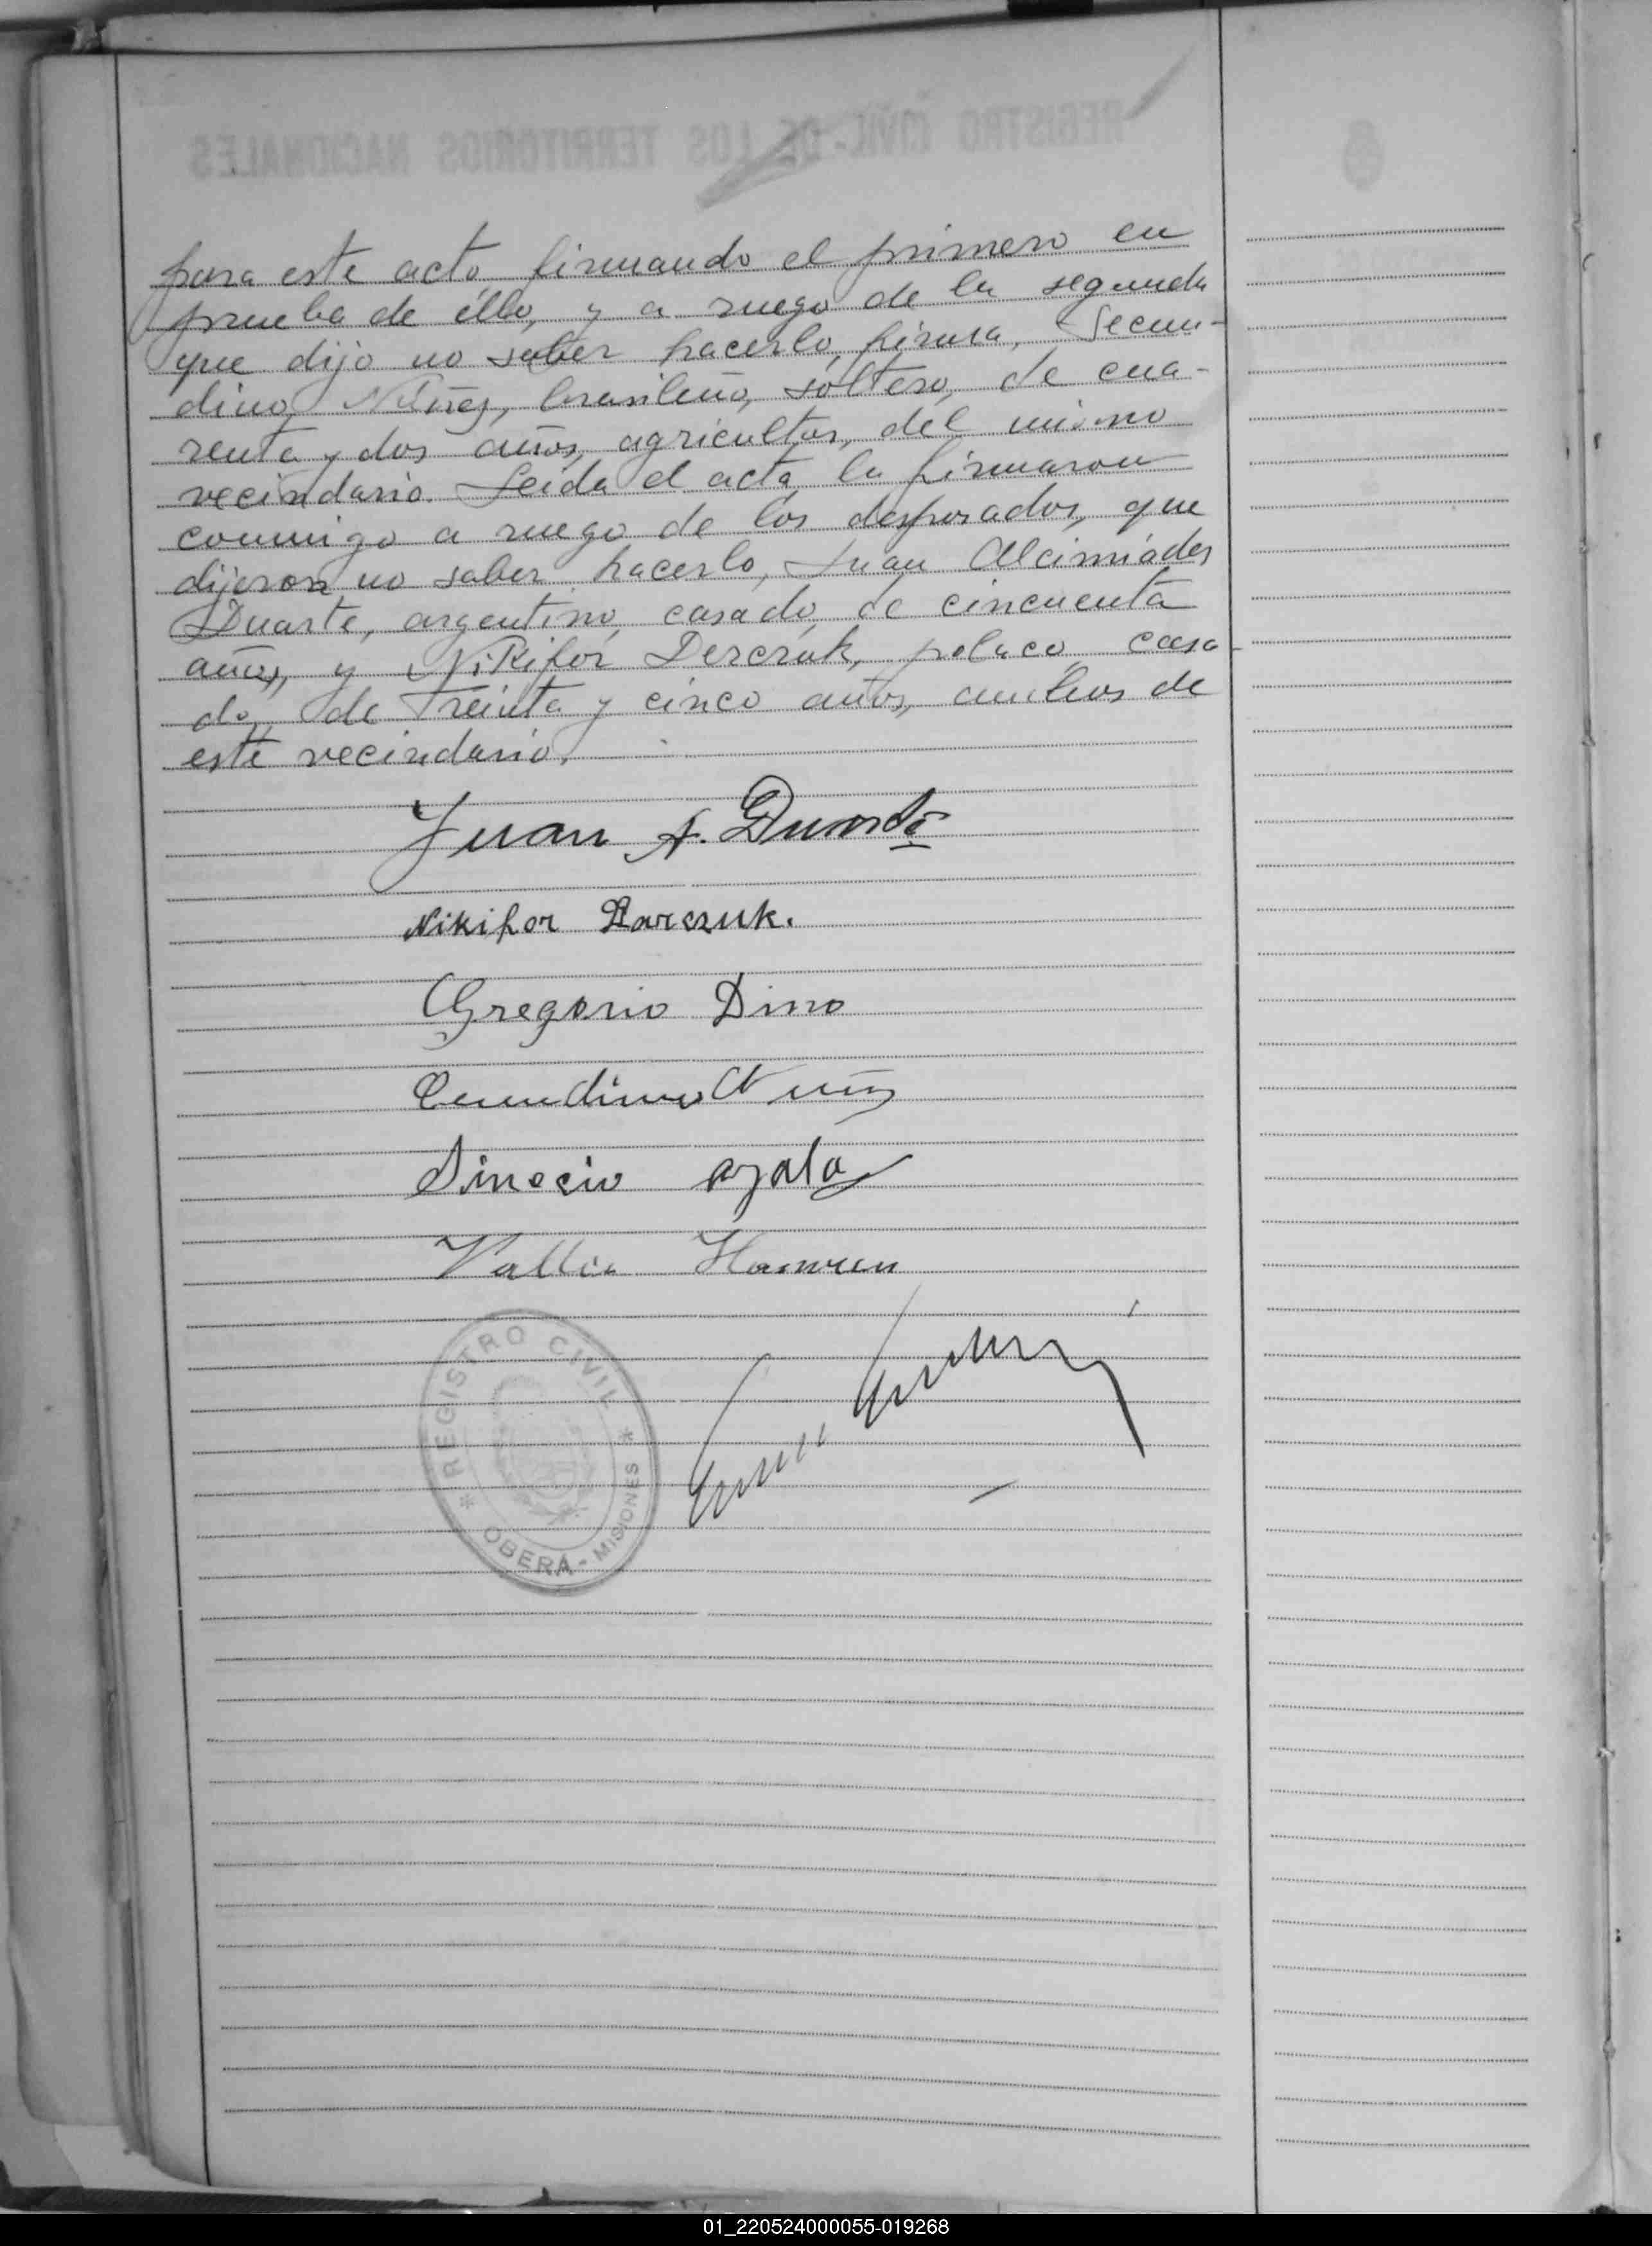 REGISTRO CIVIL DE LOS TERRITORIOS NACIONALES
para este acto firmando el primero en
prueba de éllo, y a ruego de la segunda
que dijo no saber hacerlo, firma, Secun-
dino Núñez, brasileño, soltero, de cua-
renta y dos años, agricultor, del mismo
vecindario. Leída el acta la firmaron
conmigo a ruego de los desposados, que
dijeron no saber hacerlo, Juan Alcimíades
Duarte, argentino, casado, de cincuenta
años, y Nikifor Derczuk, polaco, casa-
do, de treinta y cinco años, ambos de
este vecindario.
Juan A. Duarte
Nikifor Darczuk.
Gregorio Dino
Cecundino Nuñz
Dinocio ayala
REGISTRO CIVIL
OBERÁ - MISIONES
01_220524000055-019268